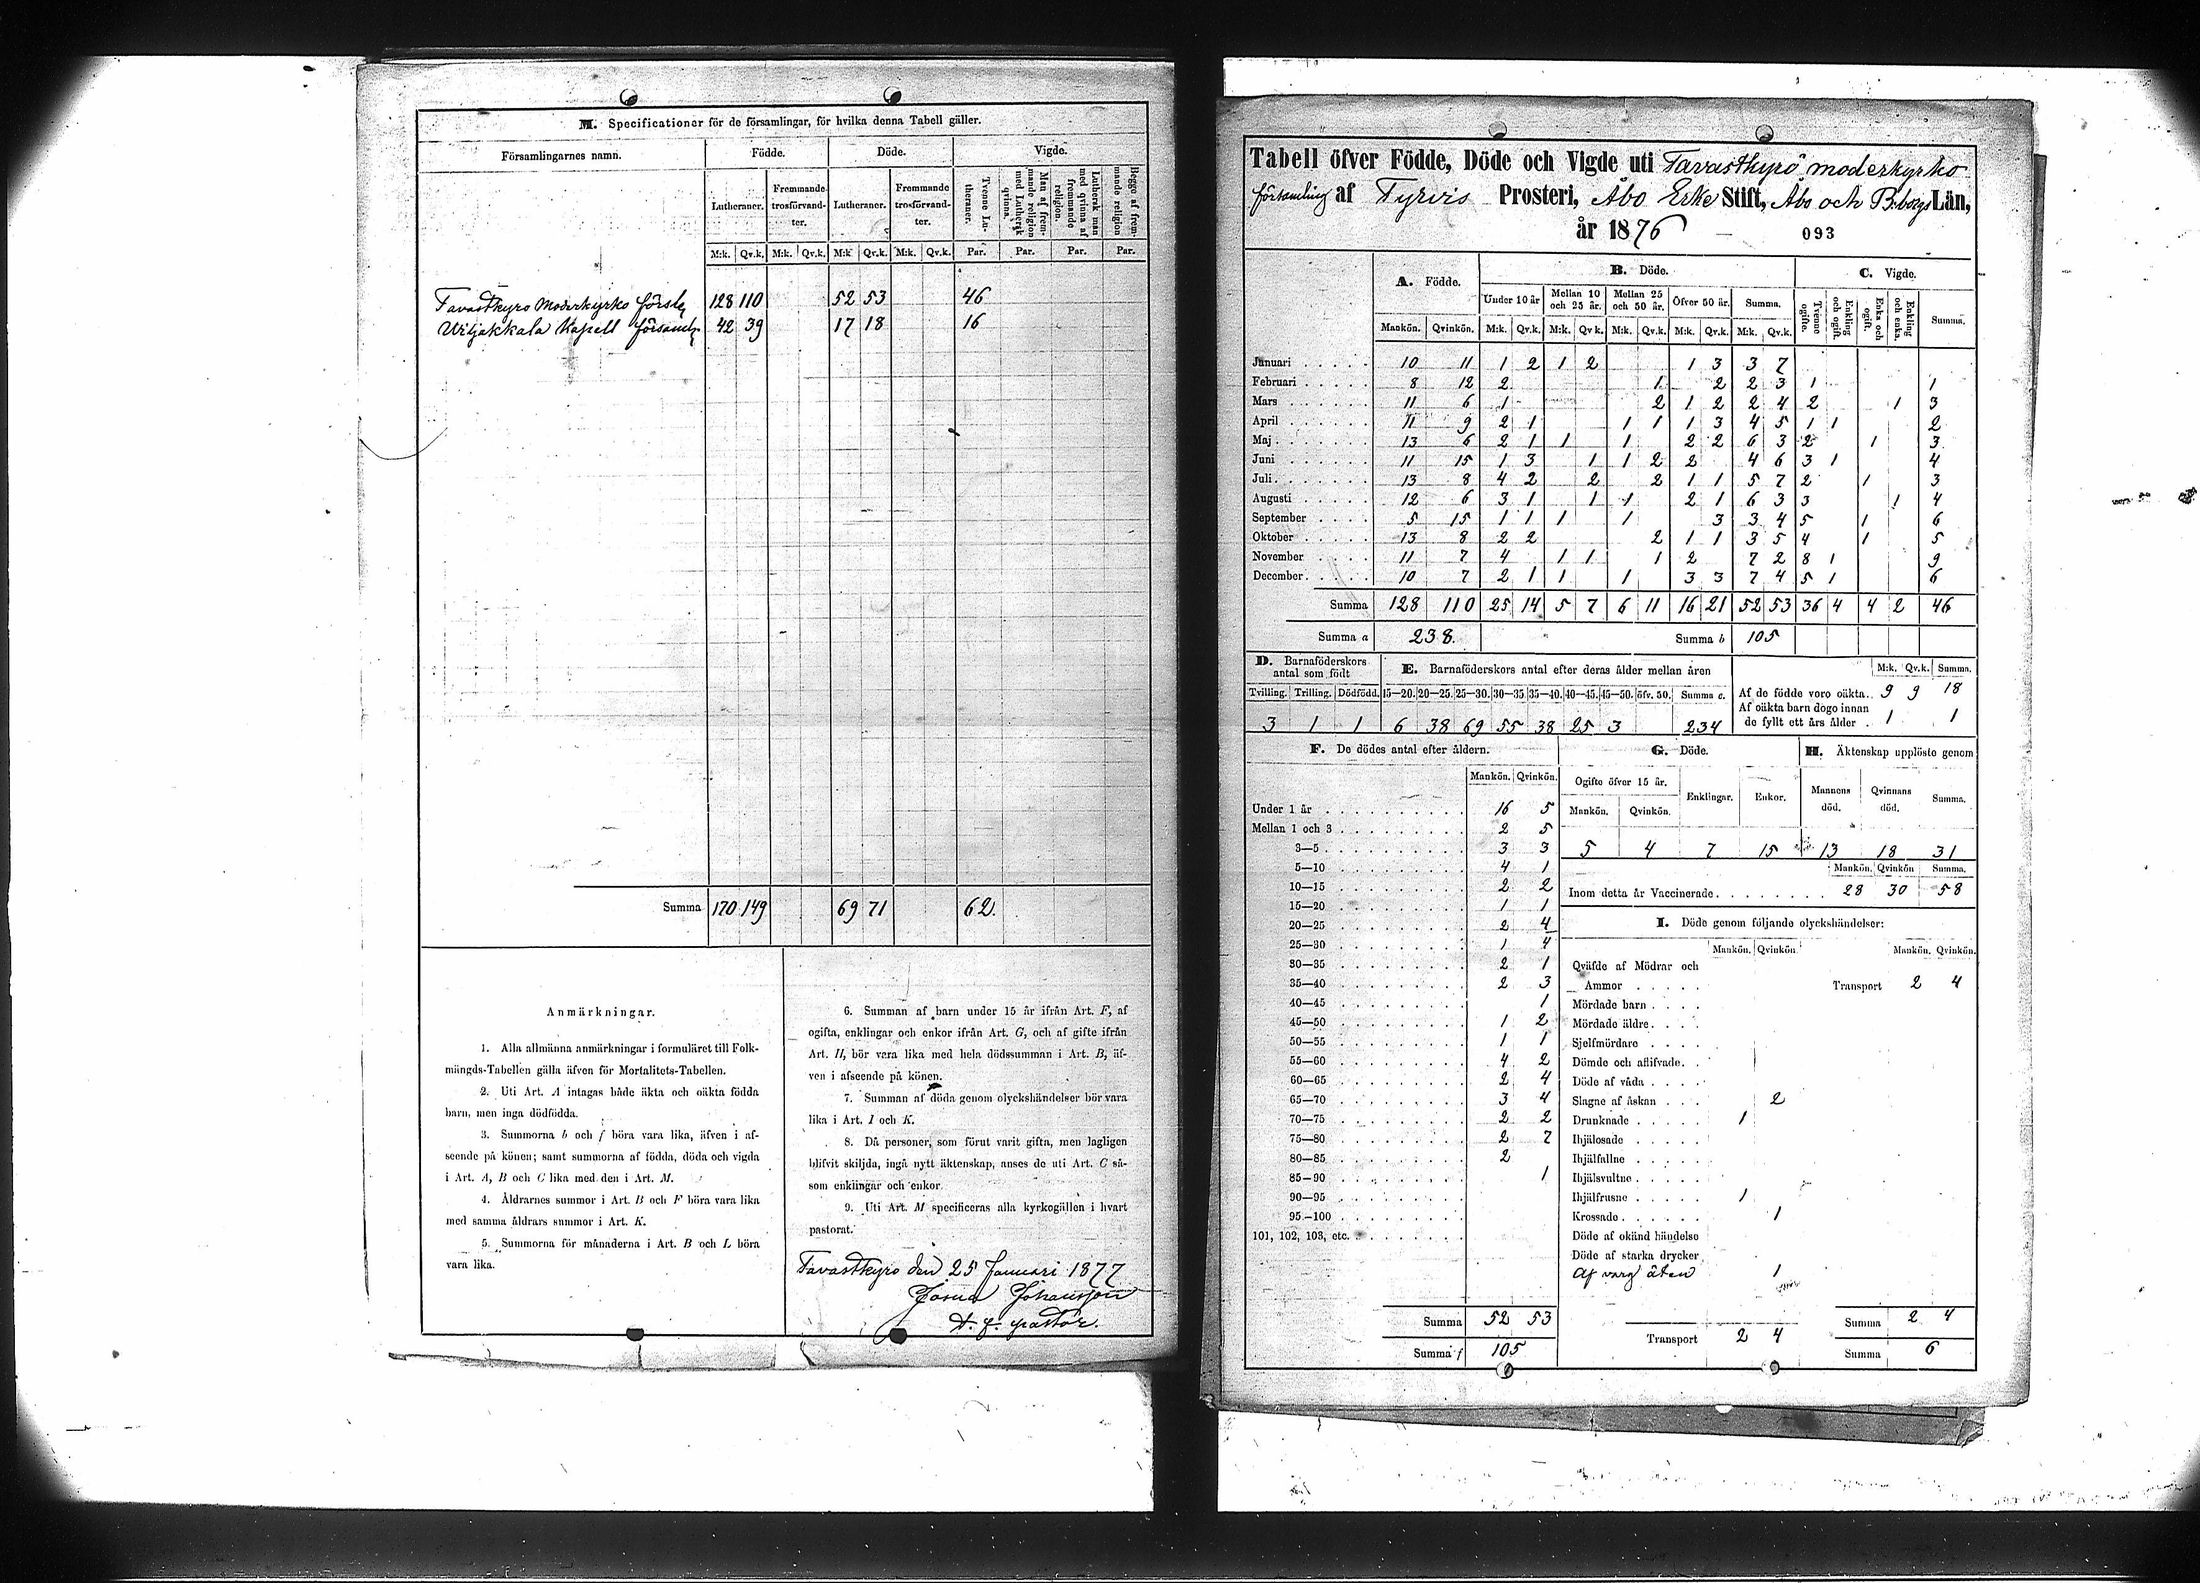 M. Specificationer för de församlingar, för hvilka denna Tabell gäller.
Församlingarnes namn. Födde. Döde. Vigde.
Lutheraner. Fremmande trosförvandter. Lutheraner. Fremmande trosförvandter. Tvenne Lutheraner. Man af fremmande religion med Luthersk qvinna. Luthersk man med qvinna af fremmande religion. Begge af fremmande religion
M:k. Qv.k. M:k. Qv.k. M:k Qv.k. M:k. Qv.k. Par. Par. Par. Par.
Tavastkyro Moderkyrko församlg 128 110 52 53 46
Witjakkala Kapell församlg 42 39 17 18 16
Summa 170 149 69 71 62
Anmärkningar.
1. Alla allmänna anmärkningar i formuläret till Folk-
mängds-Tabellen gälla äfven för Mortalitets-Tabellen.
2. Uti Art. A intagas både äkta och oäkta födda
barn, men inga dödfödda.
3. Summorna b och f böra vara lika, äfven i af-
seende på könen; samt summorna af födda, döda och vigda
i Art. A, B och C lika med den i Art. M.
4. Åldrarnes summor i Art. B och F böra vara lika
med samma åldrars summor i Art. K.
5. Summorna för månaderna i Art. B och L böra
vara lika.
6. Summan af barn under 15 år ifrån Art. F, af
ogifta, enklingar och enkor ifrån Art. G, och af gifte ifrån
Art. H, bör vara lika med hela dödssumman i Art. B, äf-
ven i afseende på könen.
7. Summan af döda genom olyckshändelser bör vara
lika i Art. I och K.
8. Då personer, som förut varit gifta, men lagligen
blifvit skiljda, ingå nytt äktenskap, anses de uti Art. C så-
som enklingar och enkor.
9. Uti Art. M specificeras alla kyrkogällen i hvart
pastorat.
Tavastkyro den 25 Januari 1877
Josua Johansson
t. f. pastor.
Tabell öfver Födde, Döde och Vigde uti Tavastkyrö moderkyrko
församling af Tyrvis Prosteri, Åbo Erke Stift, Åbo och B:borgs Län,
år 1876 093
A. Födde. B. Döde. C. Vigde.
Under 10 år Mellan 10 och 25 år. Mellan 25 och 50 år. Öfver 50 år. Summa. Tvenne ogifte. Enkling och ogift. Enka och ogift. Enkling och enka. Summa.
Mankön. Qvinkön. M:k. Qv.k. M:k. Qv.k. M:k. Qv.k. M:k. Qv.k. M:k. Qv.k.
Januari 10 11 1 2 1 2 1 3 3 7
Februari 8 12 2 1 2 2 3 1 1
Mars 11 6 1 2 1 2 2 4 2 1 3
April 11 9 2 1 1 1 1 3 4 5 1 1 2
Maj 13 6 2 1 1 1 2 2 6 3 2 1 3
Juni 11 15 1 3 1 1 2 2 4 6 3 1 4
Juli 13 8 4 2 2 2 1 1 5 7 2 1 3
Augusti 12 6 3 1 1 1 2 1 6 3 3 1 4
September 5 15 1 1 1 1 3 3 4 5 1 6
Oktober 13 8 2 2 2 1 1 3 5 4 1 5
November 11 7 4 1 1 1 2 7 2 8 1 9
December 10 7 2 1 1 1 3 3 7 4 5 1 6
Summa 128 110 25 14 5 7 6 11 16 21 52 53 36 4 4 2 46
Summa a 238. Summa b 105
D. Barnaföderskors antal som födt
Tvilling. Trilling. Dödfödd.
3 1 1
E. Barnaföderskors antal efter deras ålder mellan åren
15—20. 20—25. 25—30. 30—35 35—40. 40—45. 45—50. öfv. 50. Summa c.
6 38 69 55 38 25 3 234
M:k. Qv.k. Summa.
Af de födde voro oäkta. 9 9 18
Af oäkta barn dogo innan
de fyllt ett års ålder 1 1
F. De dödes antal efter åldern.
Mankön. Qvinkön.
Under 1 år 16 5
Mellan 1 och 3 2 5
3—5 3 3
5—10 4 1
10—15 2 2
15—20 1 1
20—25 2 4
25—30 1 4
30—35 2 1
35—40 2 3
40—45 1
45—50 1 2
50—55 1 1
55—60 4 2
60—65 2 4
65—70 3 4
70—75 2 2
75—80 2 7
80—85 2
85—90 1
90—95
95—100
101, 102, 103, etc.
Summa 52 53
Summa f 105
G. Döde.
Ogifte öfver 15 år. Enklingar. Enkor.
Mankön. Qvinkön.
5 4 7 15
H. Äktenskap upplöste genom
Mannens död. Qvinnans död. Summa.
13 18 31
Mankön. Qvinkön Summa.
Inom detta år Vaccinerade 28 30 58
I. Döde genom följande olyckshändelser:
Mankön. Qvinkön. Mankön. Qvinkön.
Qväfde af Mödrar och
Ammor Transport 2 4
Mördade barn
Mördade äldre
Sjelfmördare
Dömde och aflifvade.
Döde af våda
Slagne af åskan 2
Drunknade 1
Ihjälosade
Ihjälfallne
Ihjälsvultne
Ihjälfrusne 1
Krossade 1
Döde af okänd händelse
Döde af starka drycker
Af varg äten 1
Transport 2 4
Summa 2 4
Summa 6